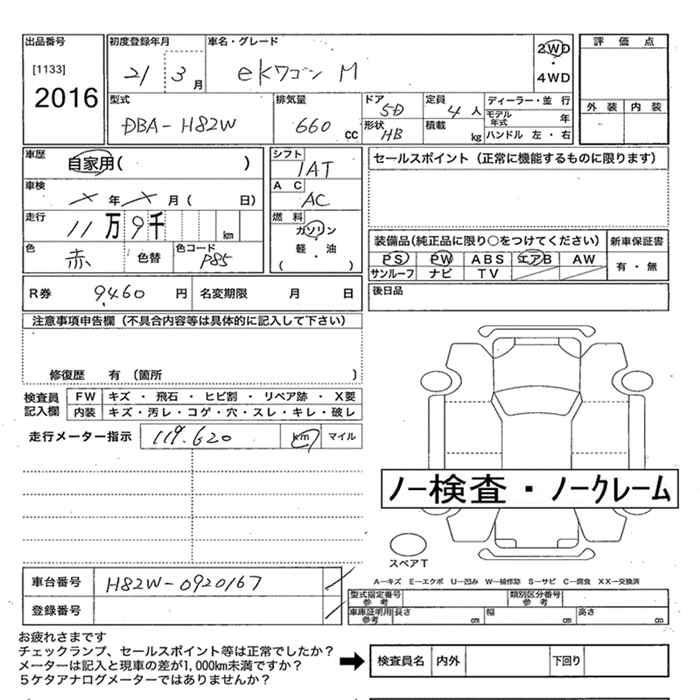 出品番号 初度登録年月 車名・グレード 評価点
[1133] 21 3月 ekワゴン M 2WD
・
2016 4WD
型式 排気量 ドア 5D 定員 4人 ディーラー・並 行 外装 内装
DBA-H82W 660cc 形状 HB 積載 kg モデル年式 年
ハンドル 左・右
車歴 自家用( ) シフト 1AT セールスポイント(正常に機能するものに限ります)
車検 メ年メ月( 日) AC AC
走行 11万9千 km 燃料 ガソリン
軽・油
( )
装備品(純正品に限り○をつけてください) 新車保証書
色 赤 色替 色コード P85 PS PW ABS エアB AW 有・無
サンルーフ ナビ TV
R券 9,460円 名変期限 月 日 後日品
注意事項申告欄(不具合内容等は具体的に記入して下さい)
修復歴 有(箇所 )
検査員記入欄 FW キズ・飛石・ヒビ割・リペア跡・X要
内装 キズ・汚レ・コゲ・穴・スレ・キレ・破レ
走行メーター指示 119.620 km マイル
ノー検査・ノークレーム
スペアT
A−キズ E−エクボ U−凹み W−補修跡 S−サビ C−腐食 XX−交換済
車台番号 H82W-0920167
型式指定番号参考 類別区分番号参考
登録番号 車庫証明用参考 長さ cm 幅 cm 高さ cm
お疲れさまです
チェックランプ、セールスポイント等は正常でしたか?
メーターは記入と現車の差が1,000km未満ですか? 検査員名 内外 下回り
5ケタアナログメーターではありませんか?